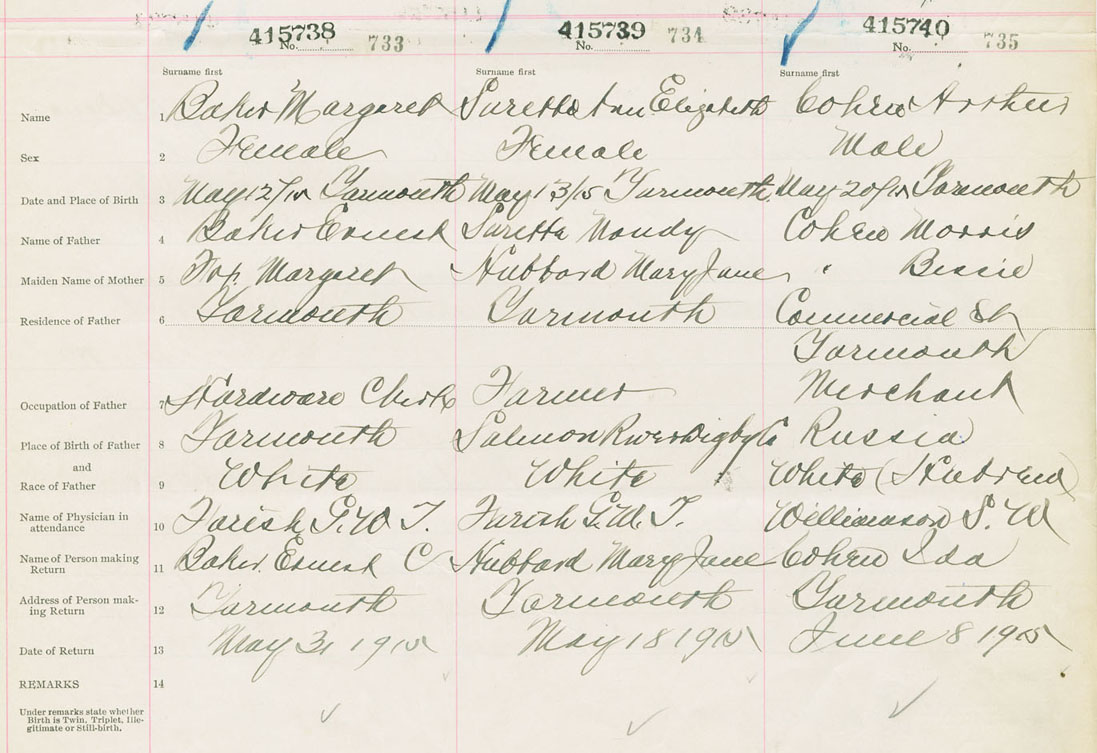 415738 415739 415740
No. 733 No. 734 No. 735
Surname first Surname first Surname first
Name 1 Baker Margaret Surette Ann Elizabeth Cohen Arthur
Sex 2 Female Female Male
Date and Place of Birth 3 May 12/15 Yarmouth May 13/15 Yarmouth May 20/15 Yarmouth
Name of Father 4 Baker Ernest Surette Mandy Cohen Morris
Maiden Name of Mother 5 Margaret Hubbard Mary Jane " Bessie
Residence of Father 6 Yarmouth Yarmouth Commercial St
Yarmouth
Occupation of Father 7 Hardware Clerk Farmer Merchant
Place of Birth of Father 8 Yarmouth Salmon River Digby Co Russia
and
Race of Father 9 White White White (Hebrew)
Name of Physician in
attendance 10 Farish G. W. T. Farish G. W. T. Williamson S. W
Name of Person making
Return 11 Baker Ernest C Hubbard Mary Jane Cohen Ida
Address of Person mak-
ing Return 12 Yarmouth Yarmouth Yarmouth
Date of Return 13 May 31 1915 May 18 1915 June 8 1915
REMARKS 14
Under remarks state whether
Birth is Twin, Triplet, Ille-
gitimate or Still-birth.